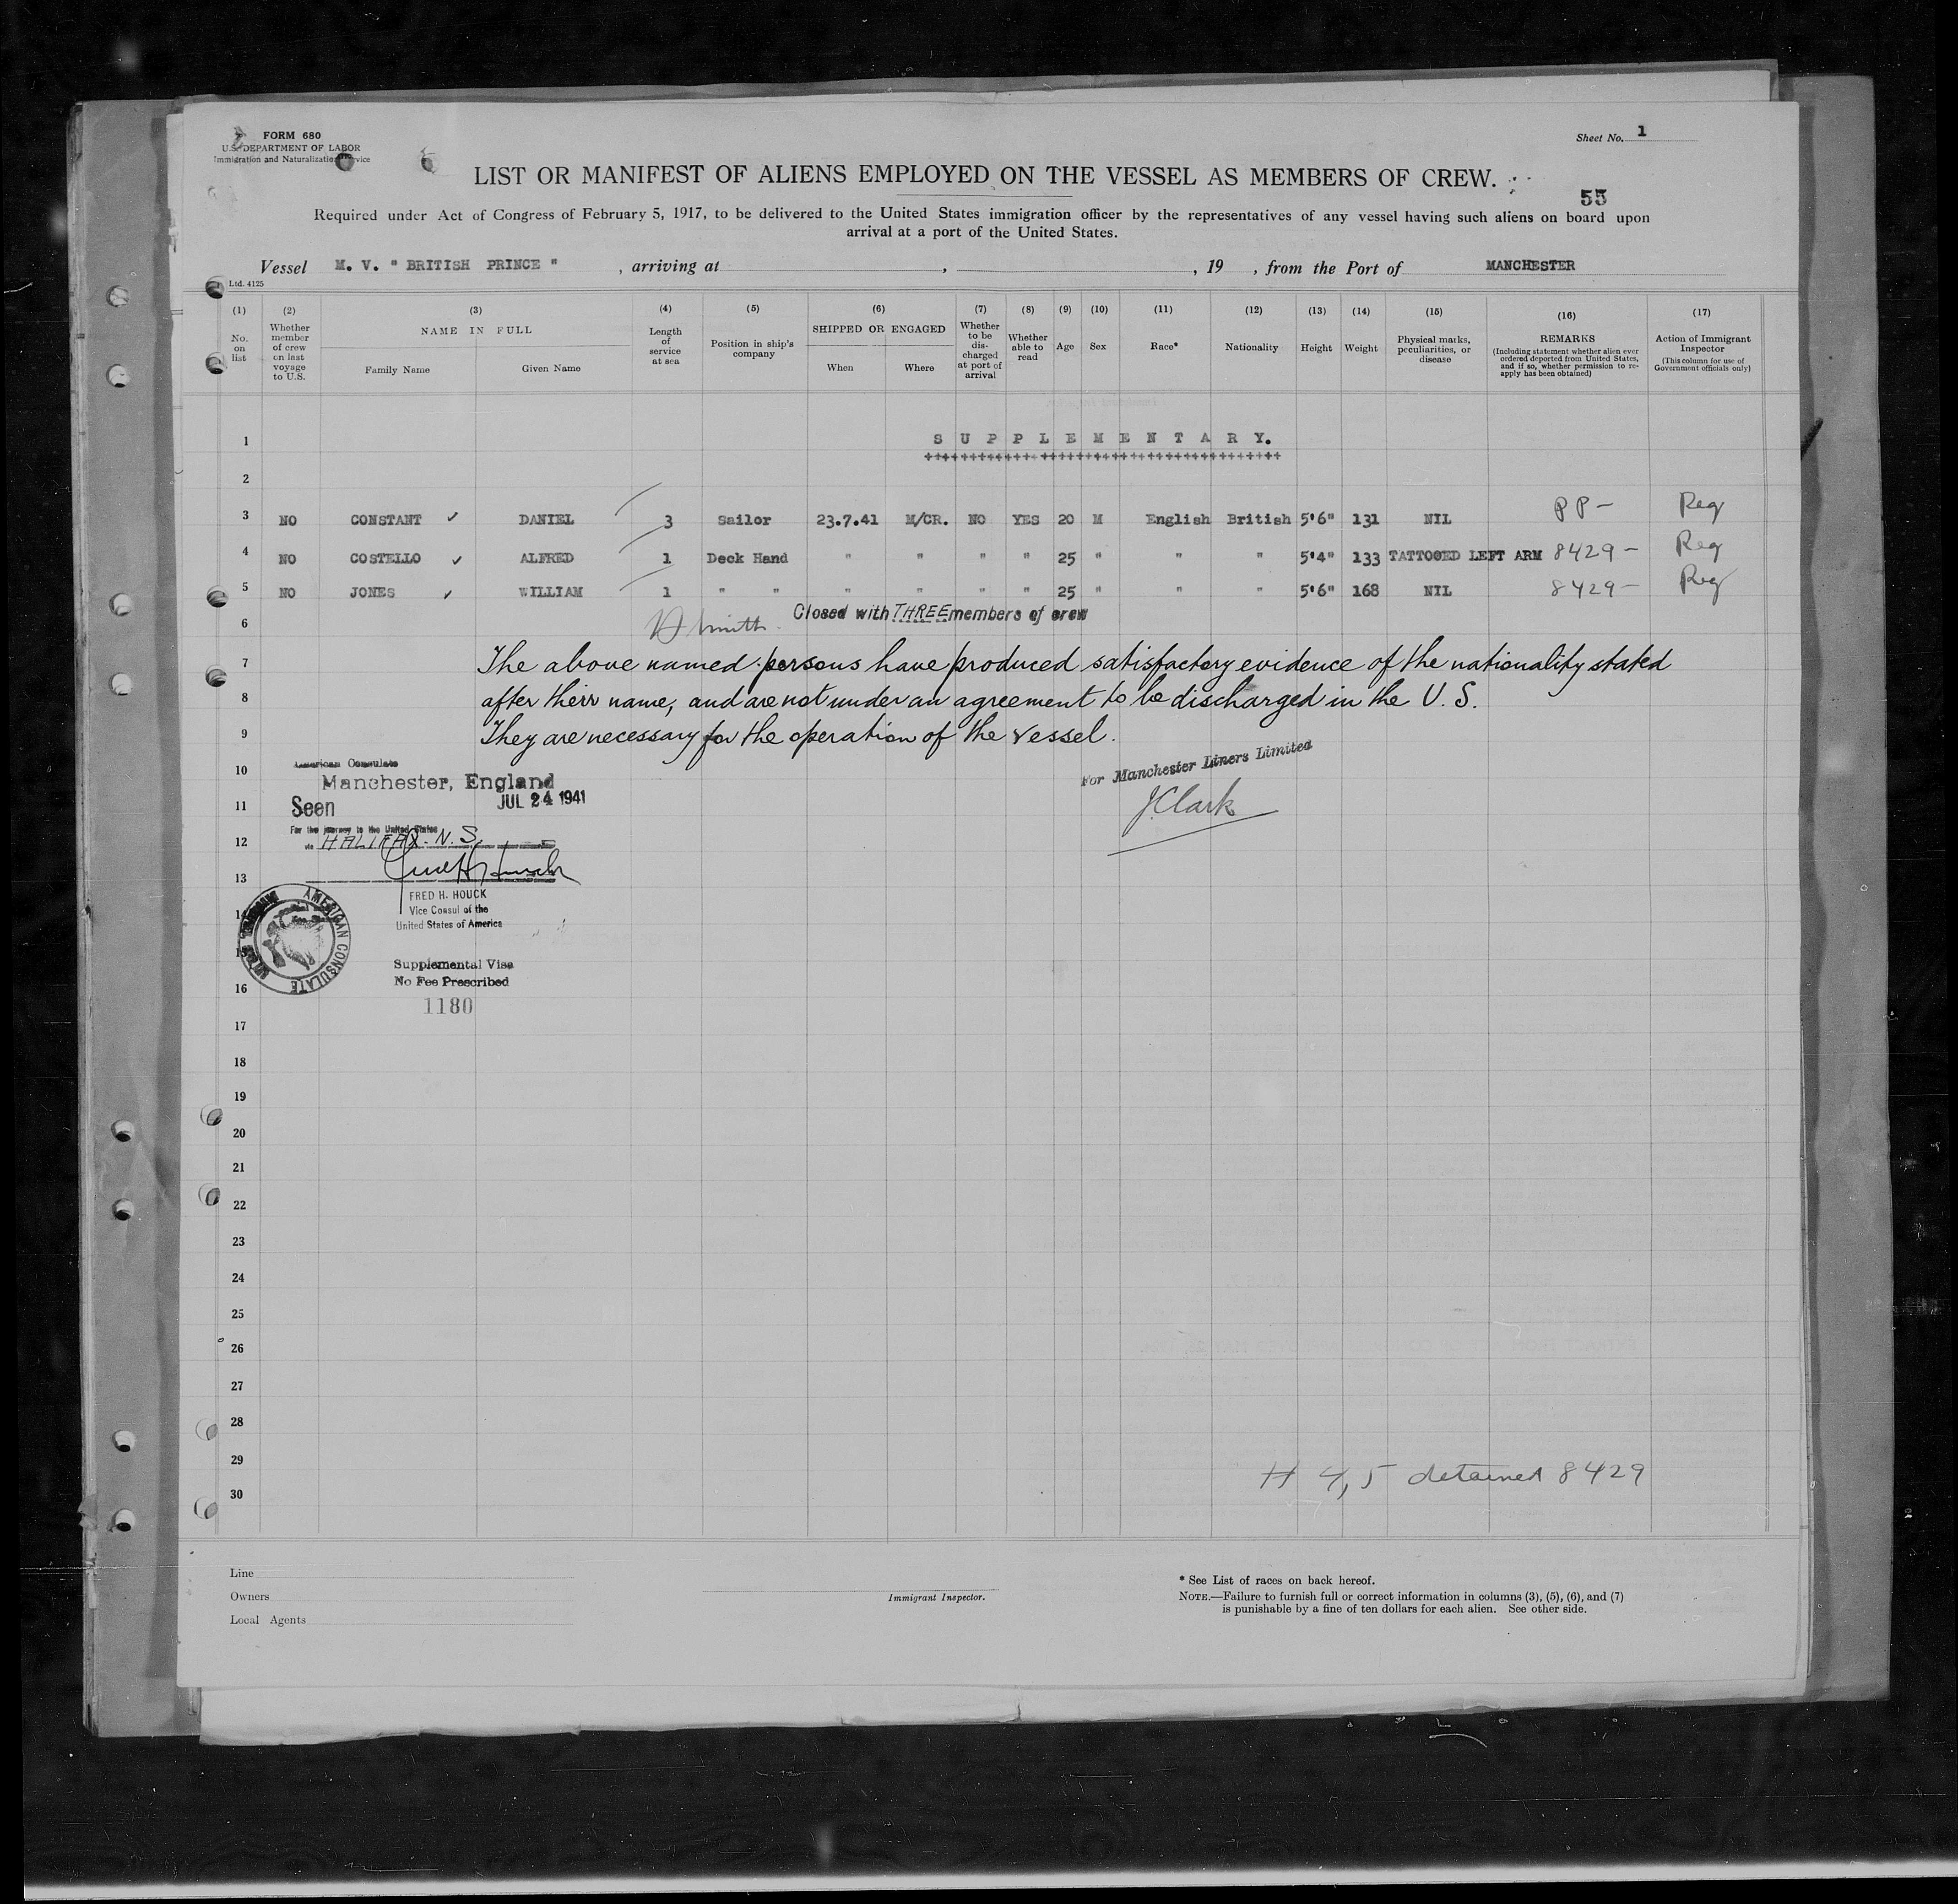 FORM 680
U.S. DEPARTMENT OF LABOR
Immigration and Naturalization Service
Sheet No. 1
LIST OR MANIFEST OF ALIENS EMPLOYED ON THE VESSEL AS MEMBERS OF CREW.
55
Required under Act of Congress of February 5, 1917, to be delivered to the United States immigration officer by the representatives of any vessel having such aliens on board upon
arrival at a port of the United States.
Vessel M. V. " BRITISH PRINCE " , arriving at , , 19 , from the Port of MANCHESTER
Ltd. 4125
(1) No. on list
(2) Whether member of crew on last voyage to U.S.
(3) NAME IN FULL
Family Name Given Name
(4) Length of service at sea
(5) Position in ship's company
(6) SHIPPED OR ENGAGED
When Where
(7) Whether to be discharged at port of arrival
(8) Whether able to read
(9) Age
(10) Sex
(11) Race*
(12) Nationality
(13) Height
(14) Weight
(15) Physical marks, peculiarities, or disease
(16) REMARKS
(Including statement whether alien ever ordered deported from United States, and if so, whether permission to reapply has been obtained)
(17) Action of Immigrant Inspector
(This column for use of Government officials only)
1 SUPPLEMENTARY.
++++++++++++++++++++++++++++++++++++
2
3 NO CONSTANT ✓ DANIEL 3 Sailor 23.7.41 M/CR. NO YES 20 M English British 5'6" 131 NIL PP – Reg
4 NO COSTELLO ✓ ALFRED 1 Deck Hand " " " " 25 " " " 5'4" 133 TATTOOED LEFT ARM 8429 – Reg
5 NO JONES ✓ WILLIAM 1 " " " " " " 25 " " " 5'6" 168 NIL 8429 – Reg
6 Smith Closed with THREE members of crew
7 The above named persons have produced satisfactory evidence of the nationality stated
8 after their name, and are not under an agreement to be discharged in the U. S.
9 They are necessary for the operation of the vessel.
10 American Consulate
Manchester, England
For Manchester Liners Limited
11 Seen JUL 24 1941
J Clark
For the journey to the United States
12 via HALIFAX. N. S.
13
FRED H. HOUCK
14 Vice Consul of the
United States of America
AMERICAN CONSULATE
15
Supplemental Visa
16 No Fee Prescribed
1180
17
18
19
20
21
22
23
24
25
26
27
28
29 # 4, 5 detained 8429
30
Line
Owners
Local Agents
Immigrant Inspector.
* See List of races on back hereof.
NOTE.—Failure to furnish full or correct information in columns (3), (5), (6), and (7)
is punishable by a fine of ten dollars for each alien. See other side.